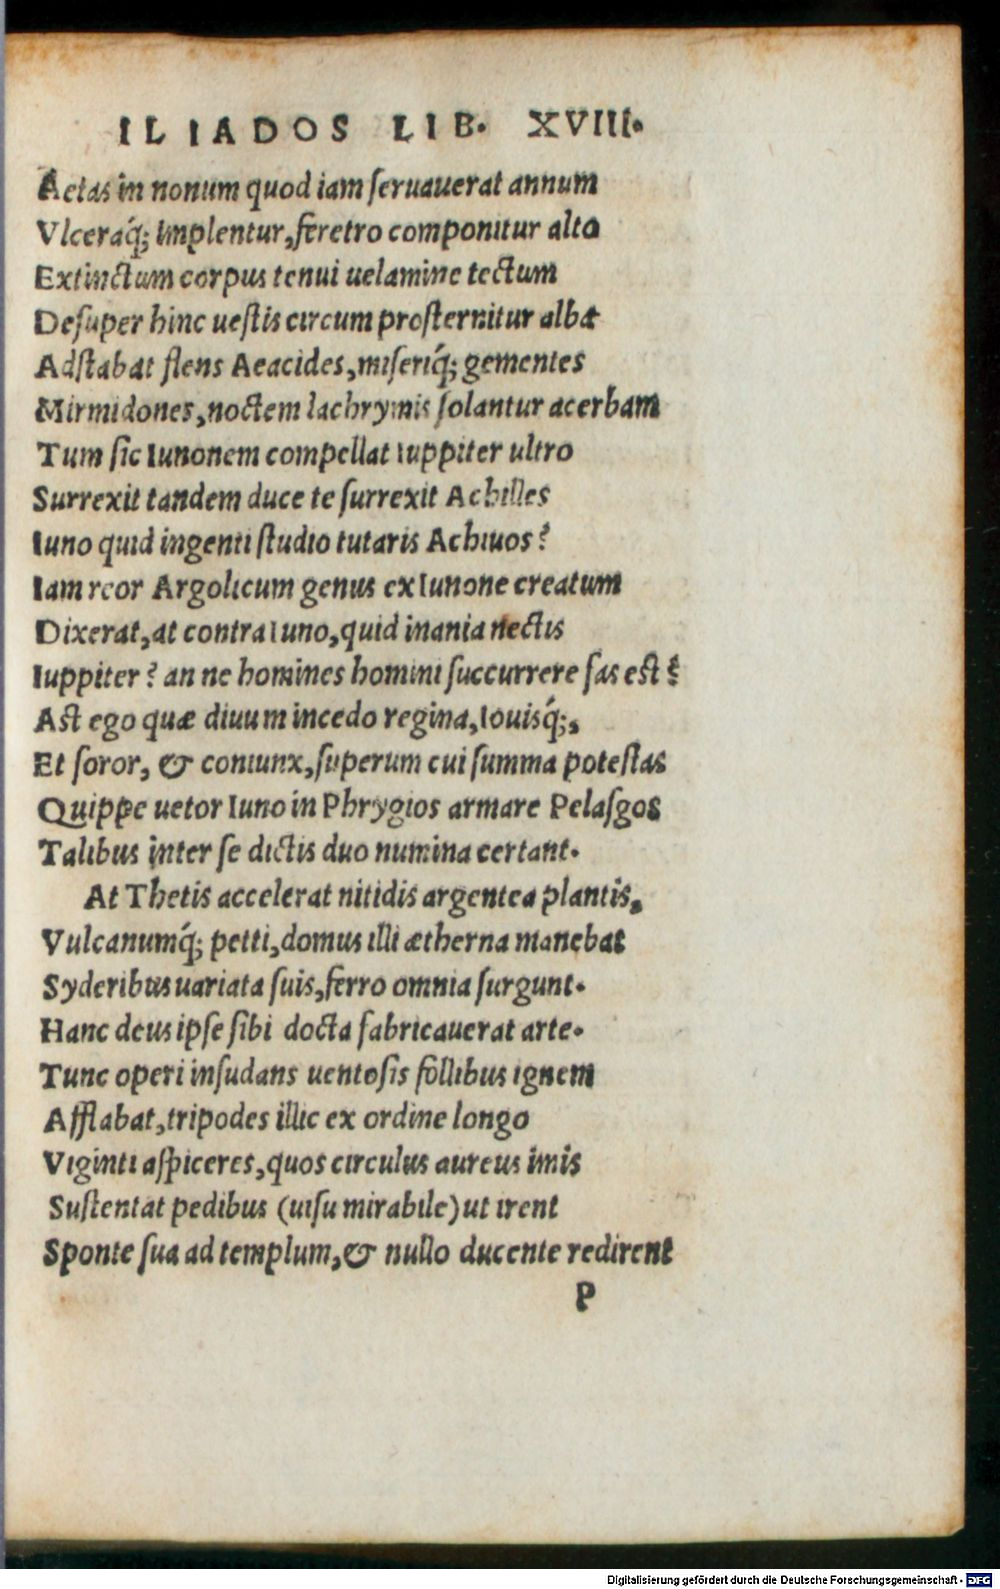 ILIADOS LIB. XVIII.
Aetas in nonum quod iam seruauerat annum
Vlceraq́; implentur, feretro componitur alto
Extinctum corpus tenui uelamine tectum
Desuper hinc uestis circum prosternitur albæ
Adstabat flens Aeacides, miseriq́; gementes
Mirmidones, noctem lachrymis solantur acerbam
Tum sic Iunonem compellat Iuppiter ultro
Surrexit tandem duce te surrexit Achilles
Iuno quid ingenti studio tutaris Achiuos?
Iam reor Argolicum genus ex Iunone creatum
Dixerat, at contra Iuno, quid inania nectis
Iuppiter? an ne homines homini succurrere fas est?
Ast ego quæ diuum incedo regina, Iouisq́;,
Et soror, & coniunx, superum cui summa potestas
Quippe uetor Iuno in Phrygios armare Pelasgos
Talibus inter se dictis duo numina certant.
At Thetis accelerat nitidis argentea plantis,
Vulcanumq́; petti, domus illi ætherna manebat
Syderibus uariata suis, ferro omnia surgunt.
Hanc deus ipse sibi docta fabricauerat arte.
Tunc operi insudans uentosis follibus ignem
Afflabat, tripodes illic ex ordine longo
Viginti aspiceres, quos circulus aureus imis
Sustentat pedibus (uisu mirabile) ut irent
Sponte sua ad templum, & nullo ducente redirent
P
Digitalisierung gefördert durch die Deutsche Forschungsgemeinschaft - DFG